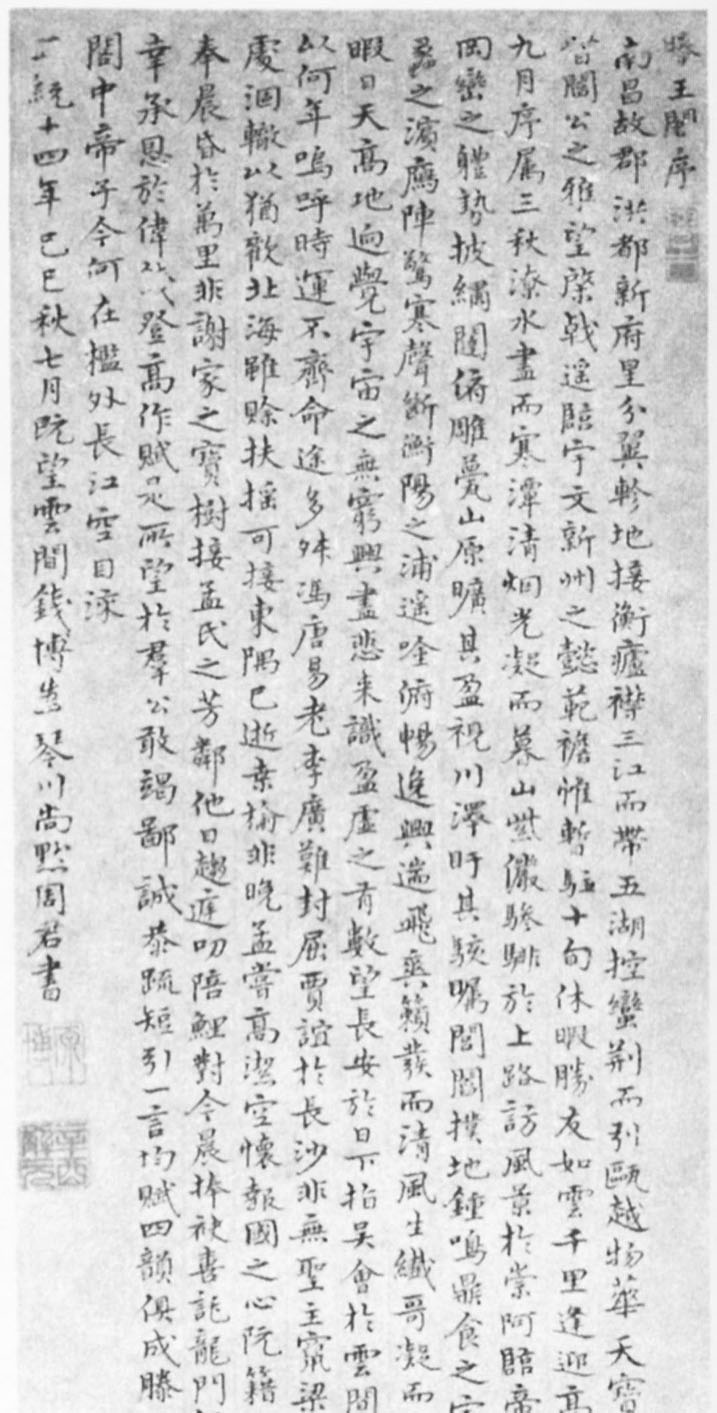 滕王閣序
南昌故郡洪都新府星分翼軫地接衡廬襟三江而帶五湖控蠻荆而引甌越物華天寶
皆閻公之雅望棨戟遥臨宇文新州之懿範襜帷暫駐十旬休暇勝友如雲千里逢迎高
九月序屬三秋潦水盡而寒潭清烟光凝而暮山紫儼驂騑於上路訪風景於崇阿臨帝
岡巒之體勢披繡闥俯雕甍山原曠其盈視川澤盱其駭矚閭閻撲地鍾鳴鼎食之
蠡之濱鴈陣驚寒聲斷衡陽之浦遥吟俯暢逸興遄飛爽籟發而清風生纖哥凝而
暇日天高地迥覺宇宙之無窮興盡悲来識盈虚之有數望長安於日下指吴會於雲間
以何年嗚呼時運不齊命途多舛馮唐易老李廣難封屈賈誼於長沙非無聖主竄梁
處涸轍以猶歡北海雖賒扶摇可接東隅已逝桑榆非晚孟嘗高潔空懷報國之心阮籍
奉晨昏於萬里非謝家之寶樹接孟氏之芳鄰他日趨庭叨陪鯉對今晨捧袂喜託龍門
幸承恩於偉餞登高作賦是所望於羣公敢竭鄙誠恭疏短引一言均賦四韻俱成滕
閣中帝子今何在檻外長江空自流
正統十四年己巳秋七月既望雲間錢博為琴川尚默周君書